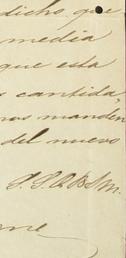 dicho que
media
que esta
cantida,
manden
del nuevo
S. S. Q. B. S. M.